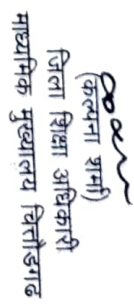 (कल्पना शर्मा)
जिला शिक्षा अधिकारी
माध्यमिक मुख्यालय चित्तौड़गढ़